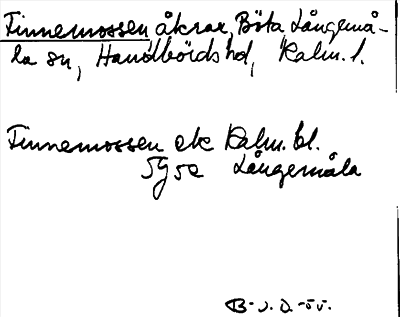 Finnemossen åkrar, Böta Långemå-
la sn, Handbörds hd, Kalm. l.
Finnemossen ek Kalm. bl.
5g5e Långemåla